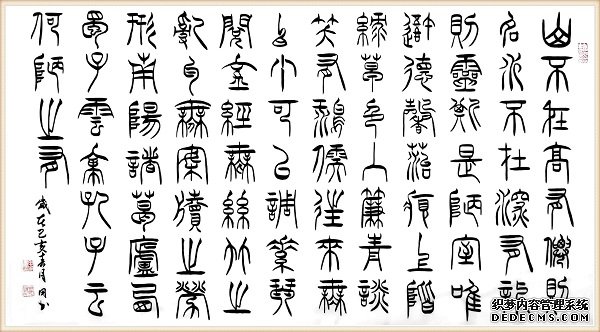 山不在高有僊則
名水不在深有龍
則靈斯是陋室唯
吾德馨苔痕上階
綠草色入簾青談
笑有鴻儒往來無
白丁可以調素琴
閱金經無絲竹之
亂耳無案牘之勞
形南陽諸葛廬西
蜀子雲亭孔子云
何陋之有
歲在己亥
织梦内容管理系统
DEDECMS.COM